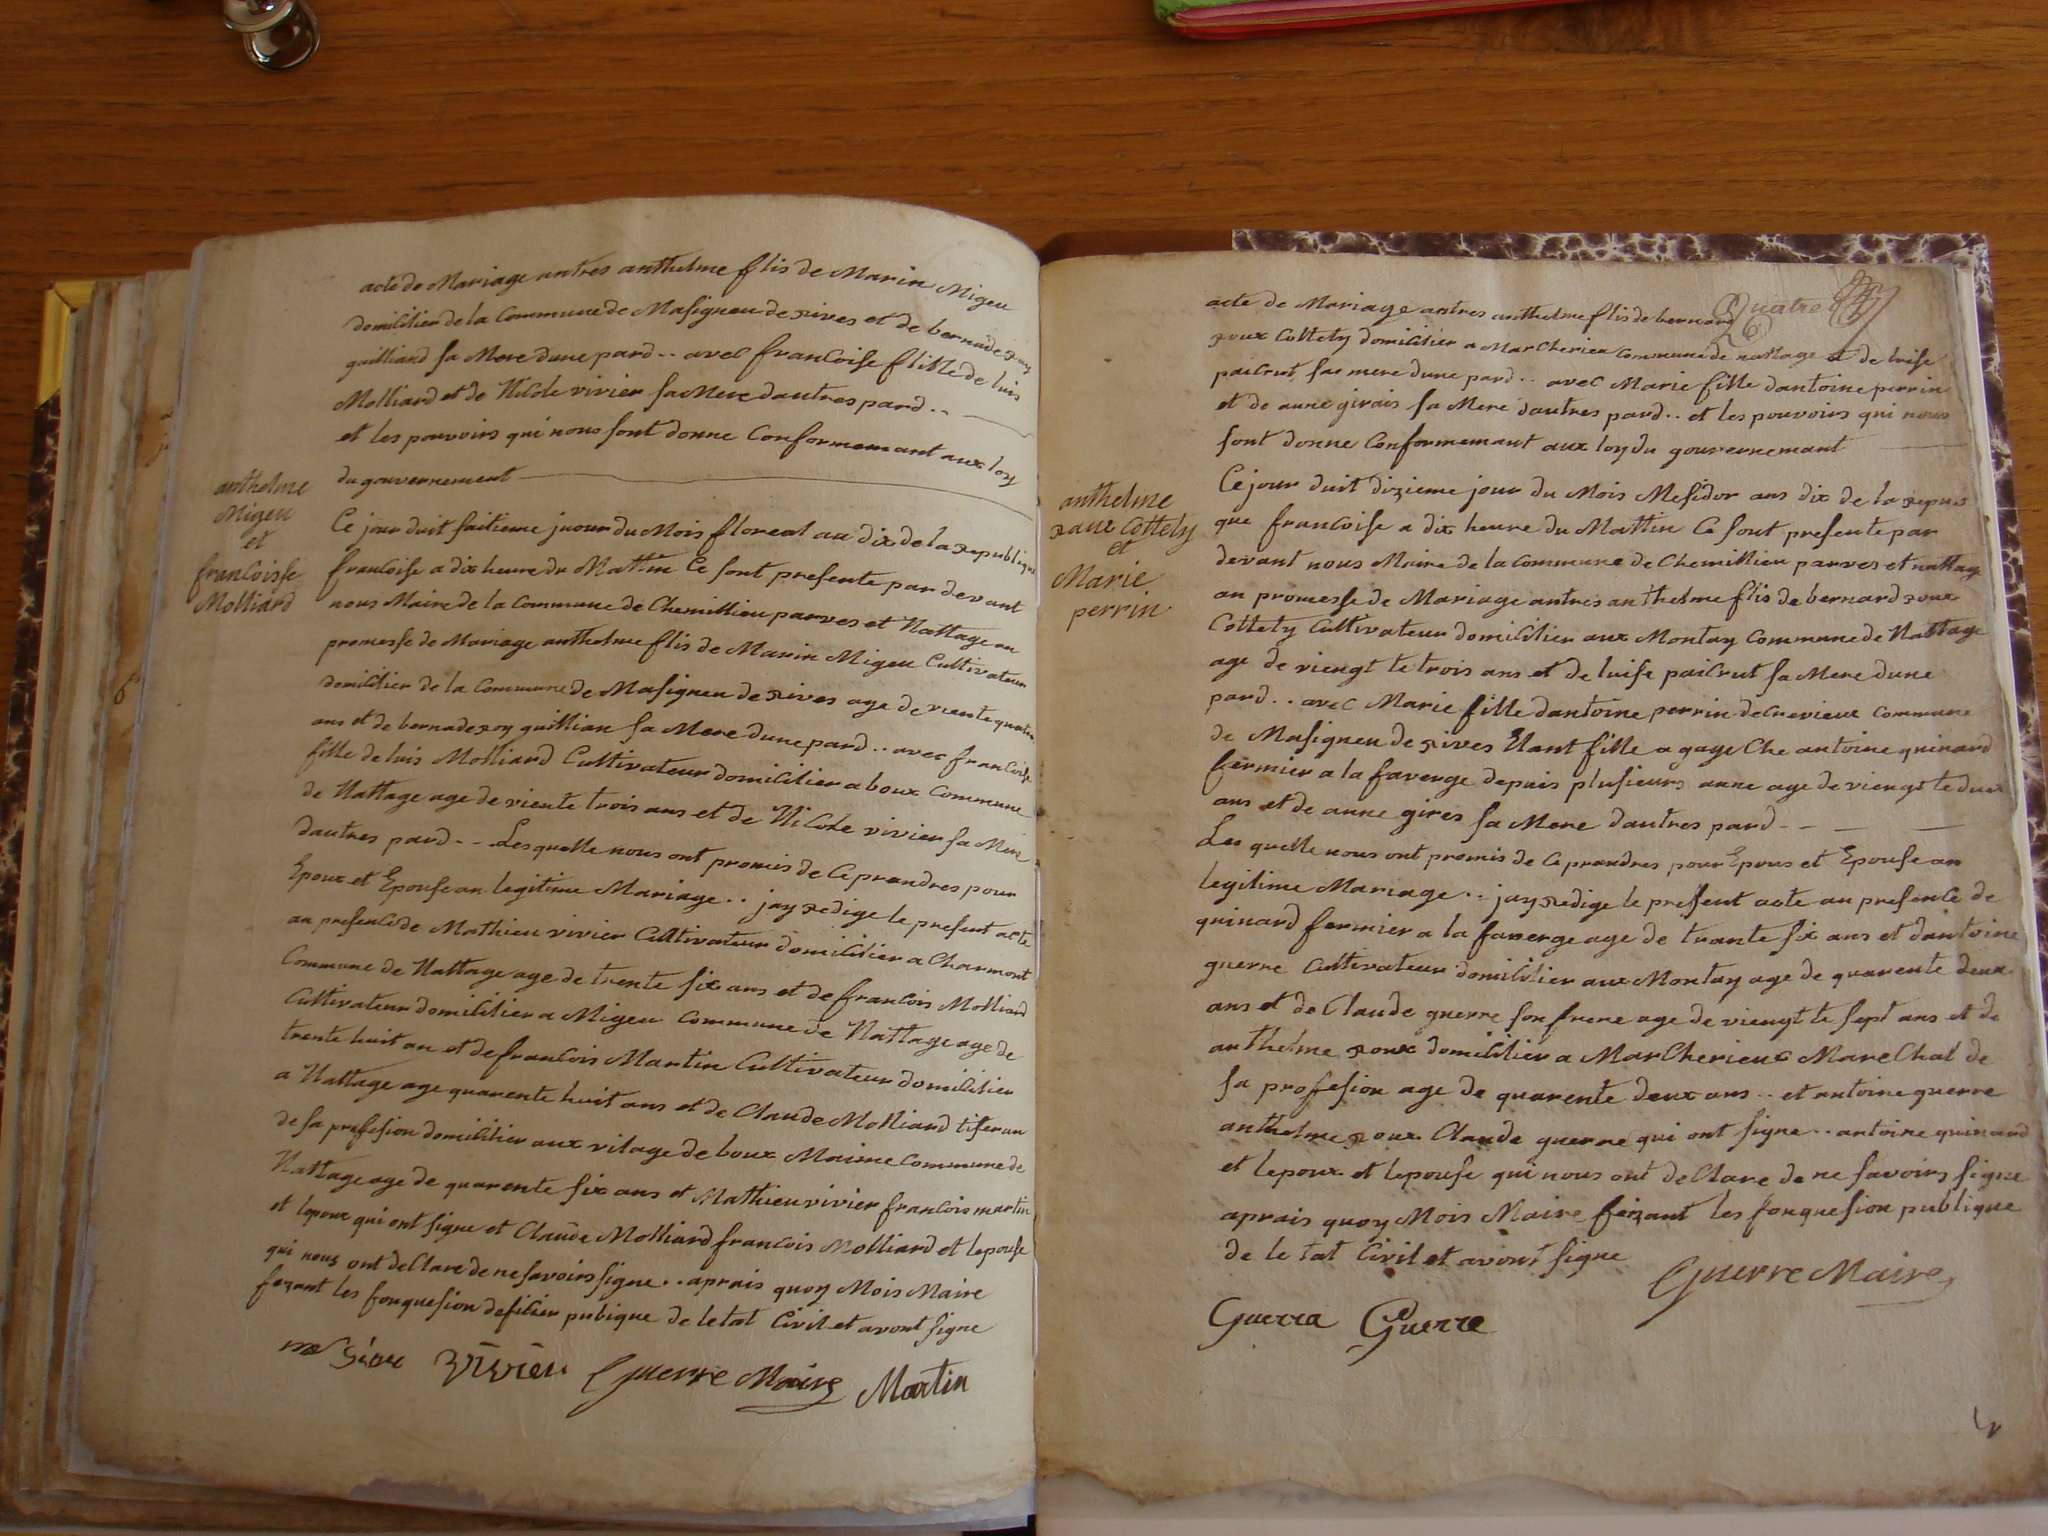 acte de Mariage antres anthelme flis de Marin Migeu
domicilier de la Commune de Masigneu de rives et de bernade roy
quilliand sa Mere dune pard .. avec francoise flille de luis
Molliard et de Nicole vivier sa Mere dautres pard ..
et les pouvoirs qui nous sont donne Conformemant aux loy
du gouvernement
anthelme
Migeu
et
francoisse
Molliard
Ce jour duit saitieme juour du Mois floreal an dix de la republique
francoise a dix heure du Mattin Ce sont presente par devant
nous Maire de la Commune de Chemillieu parves et Nattage an
promesse de Mariage anthelme flis de Marin Migeu Cultivateur
domicilier de la Commune de Masigneu de rives age de viente quatre
ans et de bernade roy quillian sa Mere dune pard .. avec francoise
fille de luis Molliard Cultivateur domicilier a boux Commune
de Nattage age de viente trois ans et de Nicole vivier sa Mere
dautres pard - - Les quelle nous ont promis de Ce prandres pour
Epoux et Epouse an legitime Mariage .. jay redige le present acte
an presence de Mathieu vivier Cultivateur domicilier a Charmont
Commune de Nattage age de trente six ans et de francois Molliard
Cultivateur domicilier a Migeu Commune de Nattage age de
trente huit an et de francois Martin Cultivateur domicilier
a Nattage age quarente huit ans et de Claude Molliard tiseran
de sa profesion domicilier aux vilage de boux Maime Commune de
Nattage age de quarente six ans et Mathieu vivier francois martin
et lepoux qui ont signe et Claude Molliard francois Molliard et lepouse
qui nous ont deClare de ne savoirs signe .. aprais quoy Mois Maire
fezant les fonquesion defisier pubique de letat Civil et avont signe
vivier Guerre Maire Martin
Quatre
acte de Mariage antres anthelme flis de bernard
roux Cottety domicilier a MarCherieu Commune de nattage et de luise
pailrut sae mere dune pard .. avec Marie fille dantoine perrin
et de anne girais sa Mere dautres pard .. et les pouvoirs qui nous
sont donne Conformemant aux loy du gouvernemant
anthelme
raux Cottety
et
Marie
perrin
Ce jour duit dizieme jour du Mois Mesidor ans dix de la republi
que francoise a dix heure du Mattin Ce sont presente par
devant nous Maire de la Commune de Chemillieu parves et nattage
an promesse de Mariage antres anthelme flis de bernard roux
Cottety Cultivateur domicilier aux Montay Commune de Nattage
age de viengt te trois ans et de luise pailrut sa Mere dune
pard .. avec Marie fille dantoine perrin de Crevieux Commune
de Masigneu de rives Etant fille a gage Che antoine quinard
fermier a la faverge depuis plusieurs anne age de viengt te deux
ans et de anne gires sa Mere dautres pard - -
Les quelle nous ont promis de Ce prandres pour Epous et Epouse an
legitime Mariage .. jay redige le present acte an presence de
quinard fermier a la faverge age de trante six ans et dantoine
guerre Cultivateur domicilier aux Montay age de quarente deux
ans et de Claude guerre son frere age de viengt te sept ans et de
anthelme roux domicilier a MarCherieux MareChal de
sa profesion age de quarente deux ans .. et antoine guerre
anthelme roux Claude guerre qui ont signe .. antoine quinard
et lepoux et lepouse qui nous ont deClare de ne savoirs signe
aprais quoy Mois Maire fezant les fonquesion publique
de le tat Civil et avont signe
Guerre Maire
Guerra Guerre